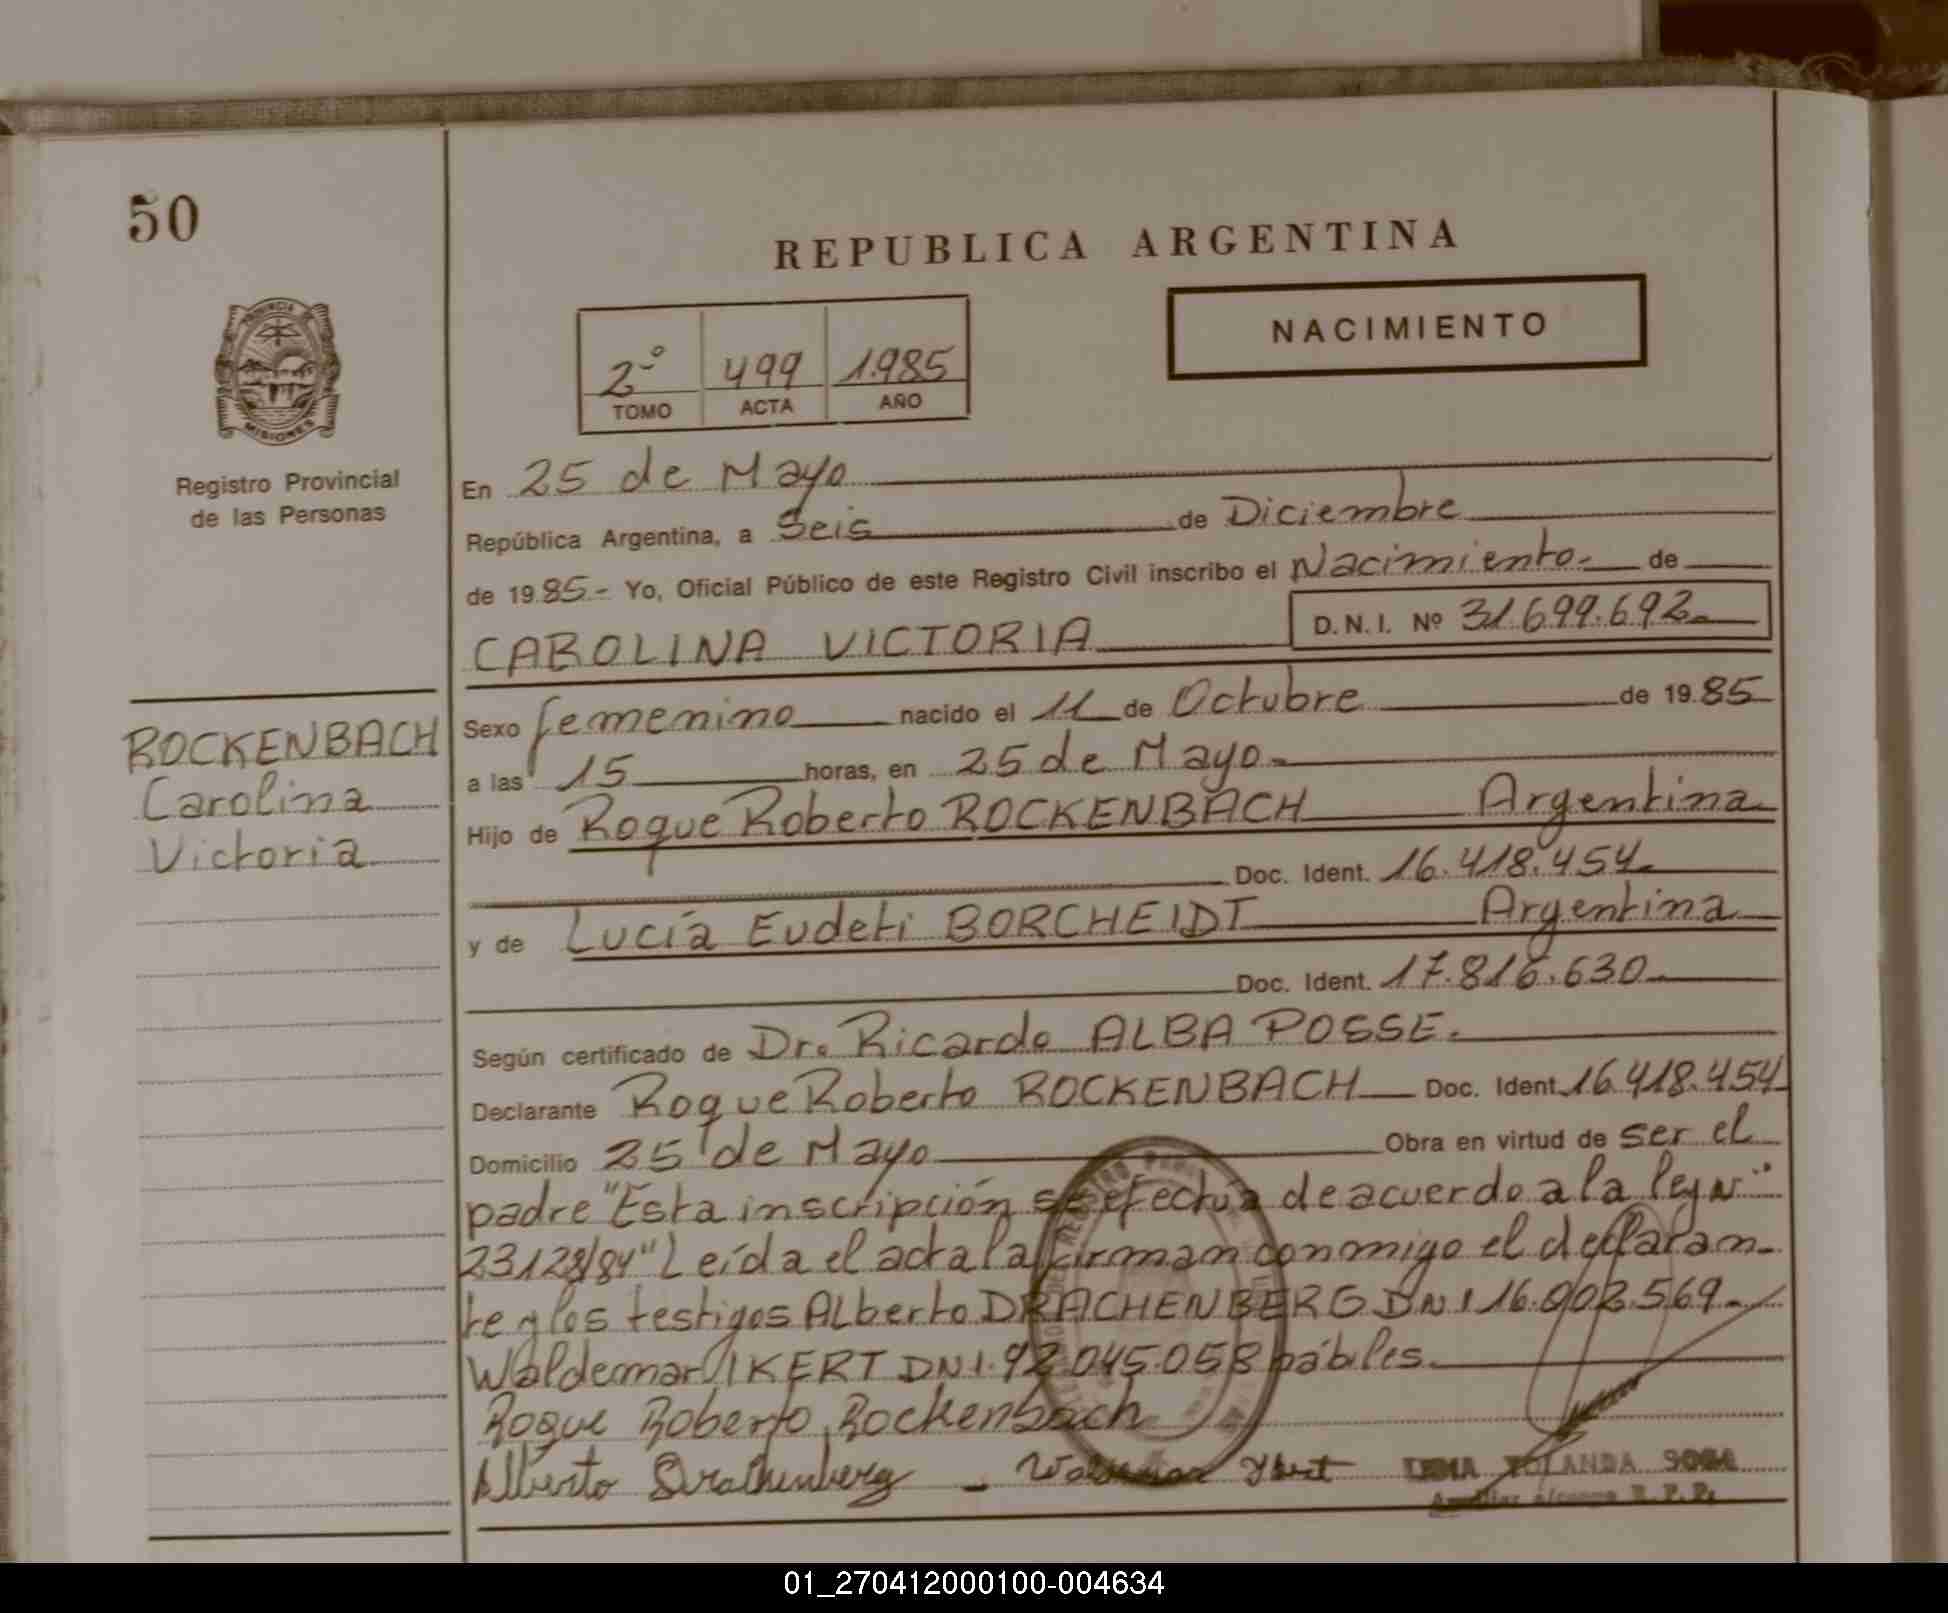 50
REPUBLICA ARGENTINA
NACIMIENTO
2º 499 1.985
TOMO ACTA AÑO
PROVINCIA DE
MISIONES
Registro Provincial
de las Personas
En 25 de Mayo
República Argentina, a Seis de Diciembre
de 1985.- Yo, Oficial Público de este Registro Civil inscribo el Nacimiento.- de
CAROLINA VICTORIA D.N.I. Nº 31.699.692.-
ROCKENBACH
Carolina
Victoria
Sexo femenino nacido el 11 de Octubre de 1985
a las 15 horas, en 25 de Mayo.-
Hijo de Roque Roberto ROCKENBACH Argentina
Doc. Ident. 16.418.454.-
y de Lucía Eudeti BORCHEIDT Argentina
Doc. Ident. 17.816.630.-
Según certificado de Dr. Ricardo ALBA POSSE.-
Declarante Roque Roberto ROCKENBACH Doc. Ident. 16.418.454
Domicilio 25 de Mayo Obra en virtud de ser el
padre "Esta inscripción se efectua de acuerdo a la ley Nº
23128/84" Leída el acta la firman conmigo el declaran-
te y los testigos Alberto DRACHENBERG DNI 16.002.569.-
Waldemar IKERT DNI. 92.045.058 hábiles.
Roque Roberto Rockenbach
Alberto Drachenberg - Waldemar
YOLANDA SOSA
01_270412000100-004634